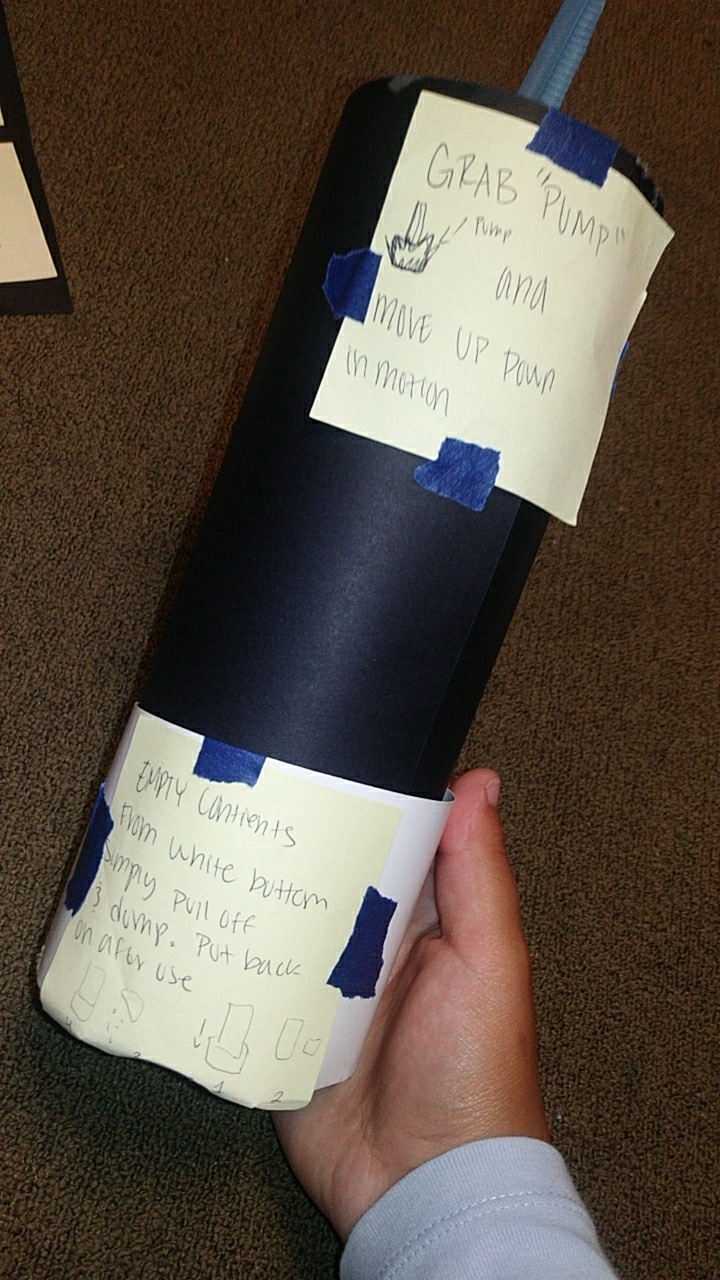 GRAB "PUMP"
Pump
and
MOVE UP DOWN
in motion
EMPTY Contents
From white buttom
Simply Pull off
& dump. Put back
on after use
1
2
3
4